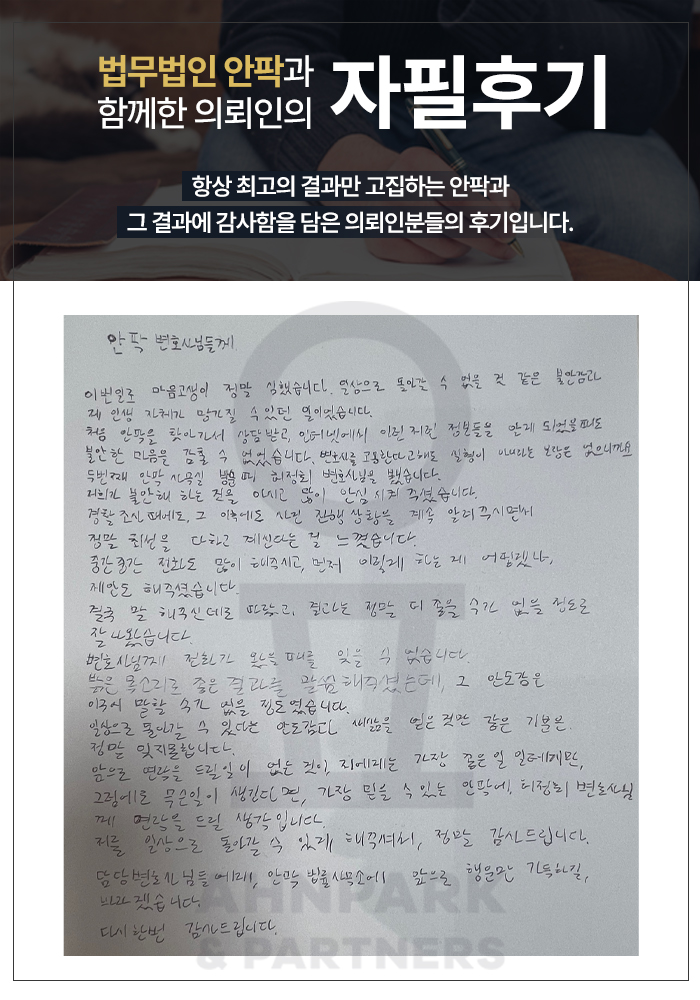 법무법인 안팍과
함께한 의뢰인의
자필후기
항상 최고의 결과만 고집하는 안팍과
그 결과에 감사함을 담은 의뢰인분들의 후기입니다.
안팍 변호사님들께
이번일로 마음고생이 정말 심했습니다. 일상으로 돌아갈 수 없을 것 같은 불안감과
제 인생 자체가 망가질 수 있던 일이었습니다.
처음 안팍을 찾아가서 상담받고, 인터넷에서 이런저런 정보들을 알게 되었을때도
불안한 마음을 감출 수 없었습니다. 변호사를 고용한다고해도 실형이 안나온다는 보장은 없으니까요
두번째 안팍 사무실 뵀을때 허정회 변호사님을 뵀습니다.
저희가 불안해 하는 것을 아시고 많이 안심 시켜 주셨습니다.
경찰 조사 때에도, 그 이후에도 사건 진행 상황을 계속 알려주시면서
정말 최선을 다하고 계신다는 걸 느꼈습니다.
중간중간 전화도 많이 해주시고, 먼저 이렇게 하는게 어떻겠냐,
제안도 해주셨습니다.
결국 말 해주신대로 따랐고, 결과는 정말 더 좋을 수가 없을 정도로
잘 나왔습니다.
변호사님께 전화가 왔을때를 잊을 수 없습니다.
밝은 목소리로 좋은 결과를 말씀해주셨는데, 그 안도감은
이루어 말할 수가 없을 정도였습니다.
일상으로 돌아갈 수 있다는 안도감과 새삶을 얻은것만 같은 기분은
정말 잊지못합니다.
앞으로 연락을 드릴 일이 없는 것이, 저에게는 가장 좋은 일 일테지만,
그럼에도 무슨일이 생긴다면, 가장 믿을 수 있는 안팍에, 허정회 변호사님
께 연락을 드릴 생각입니다.
저를 일상으로 돌아갈 수 있게 해주셔서, 정말 감사드립니다.
담당변호사님들에게, 안팍 법률사무소에 앞으로 행운만 가득하길,
바라겠습니다.
다시한번 감사드립니다.
AHNPARK
& PARTNERS